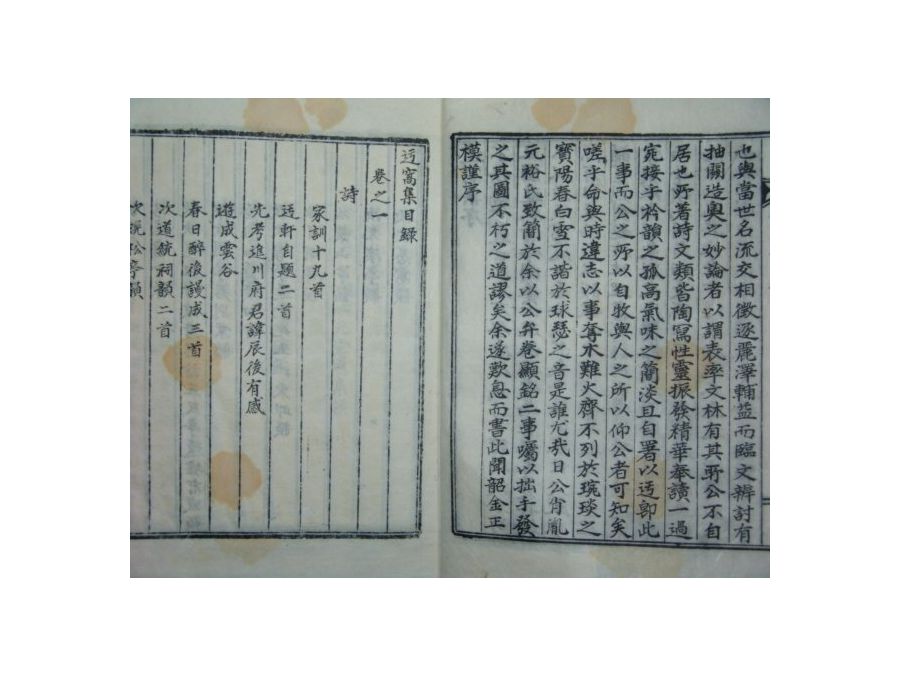 也與當世名流交相徵逐麗澤輔益而臨文辨討有
抽關造奧之妙論者以謂表率文林有其所公不自
居也所著詩文類皆陶寫性靈振發精華奉讀一過
宛接乎衿韻之孤高氣味之簡淡且自署以迃卽此
一事而公之所以自牧與人之所以仰公者可知矣
嗟乎命與時違志以事奪木難火齊不列於琬琰之
寶陽春白雪不諧於球瑟之音是誰尤哉日公胄胤
元裕氏致簡於余以公弁卷顯銘二事囑以拙手發
之其圖不朽之道謬矣余遂歎息而書此聞韶金正
模謹序
迃窩集目錄
卷之一
詩
家訓十九首
迃軒自題二首
先考進川府君諱辰後有感
遊成雲谷
春日醉後謾成三首
次道統祠韻二首
次 亭韻